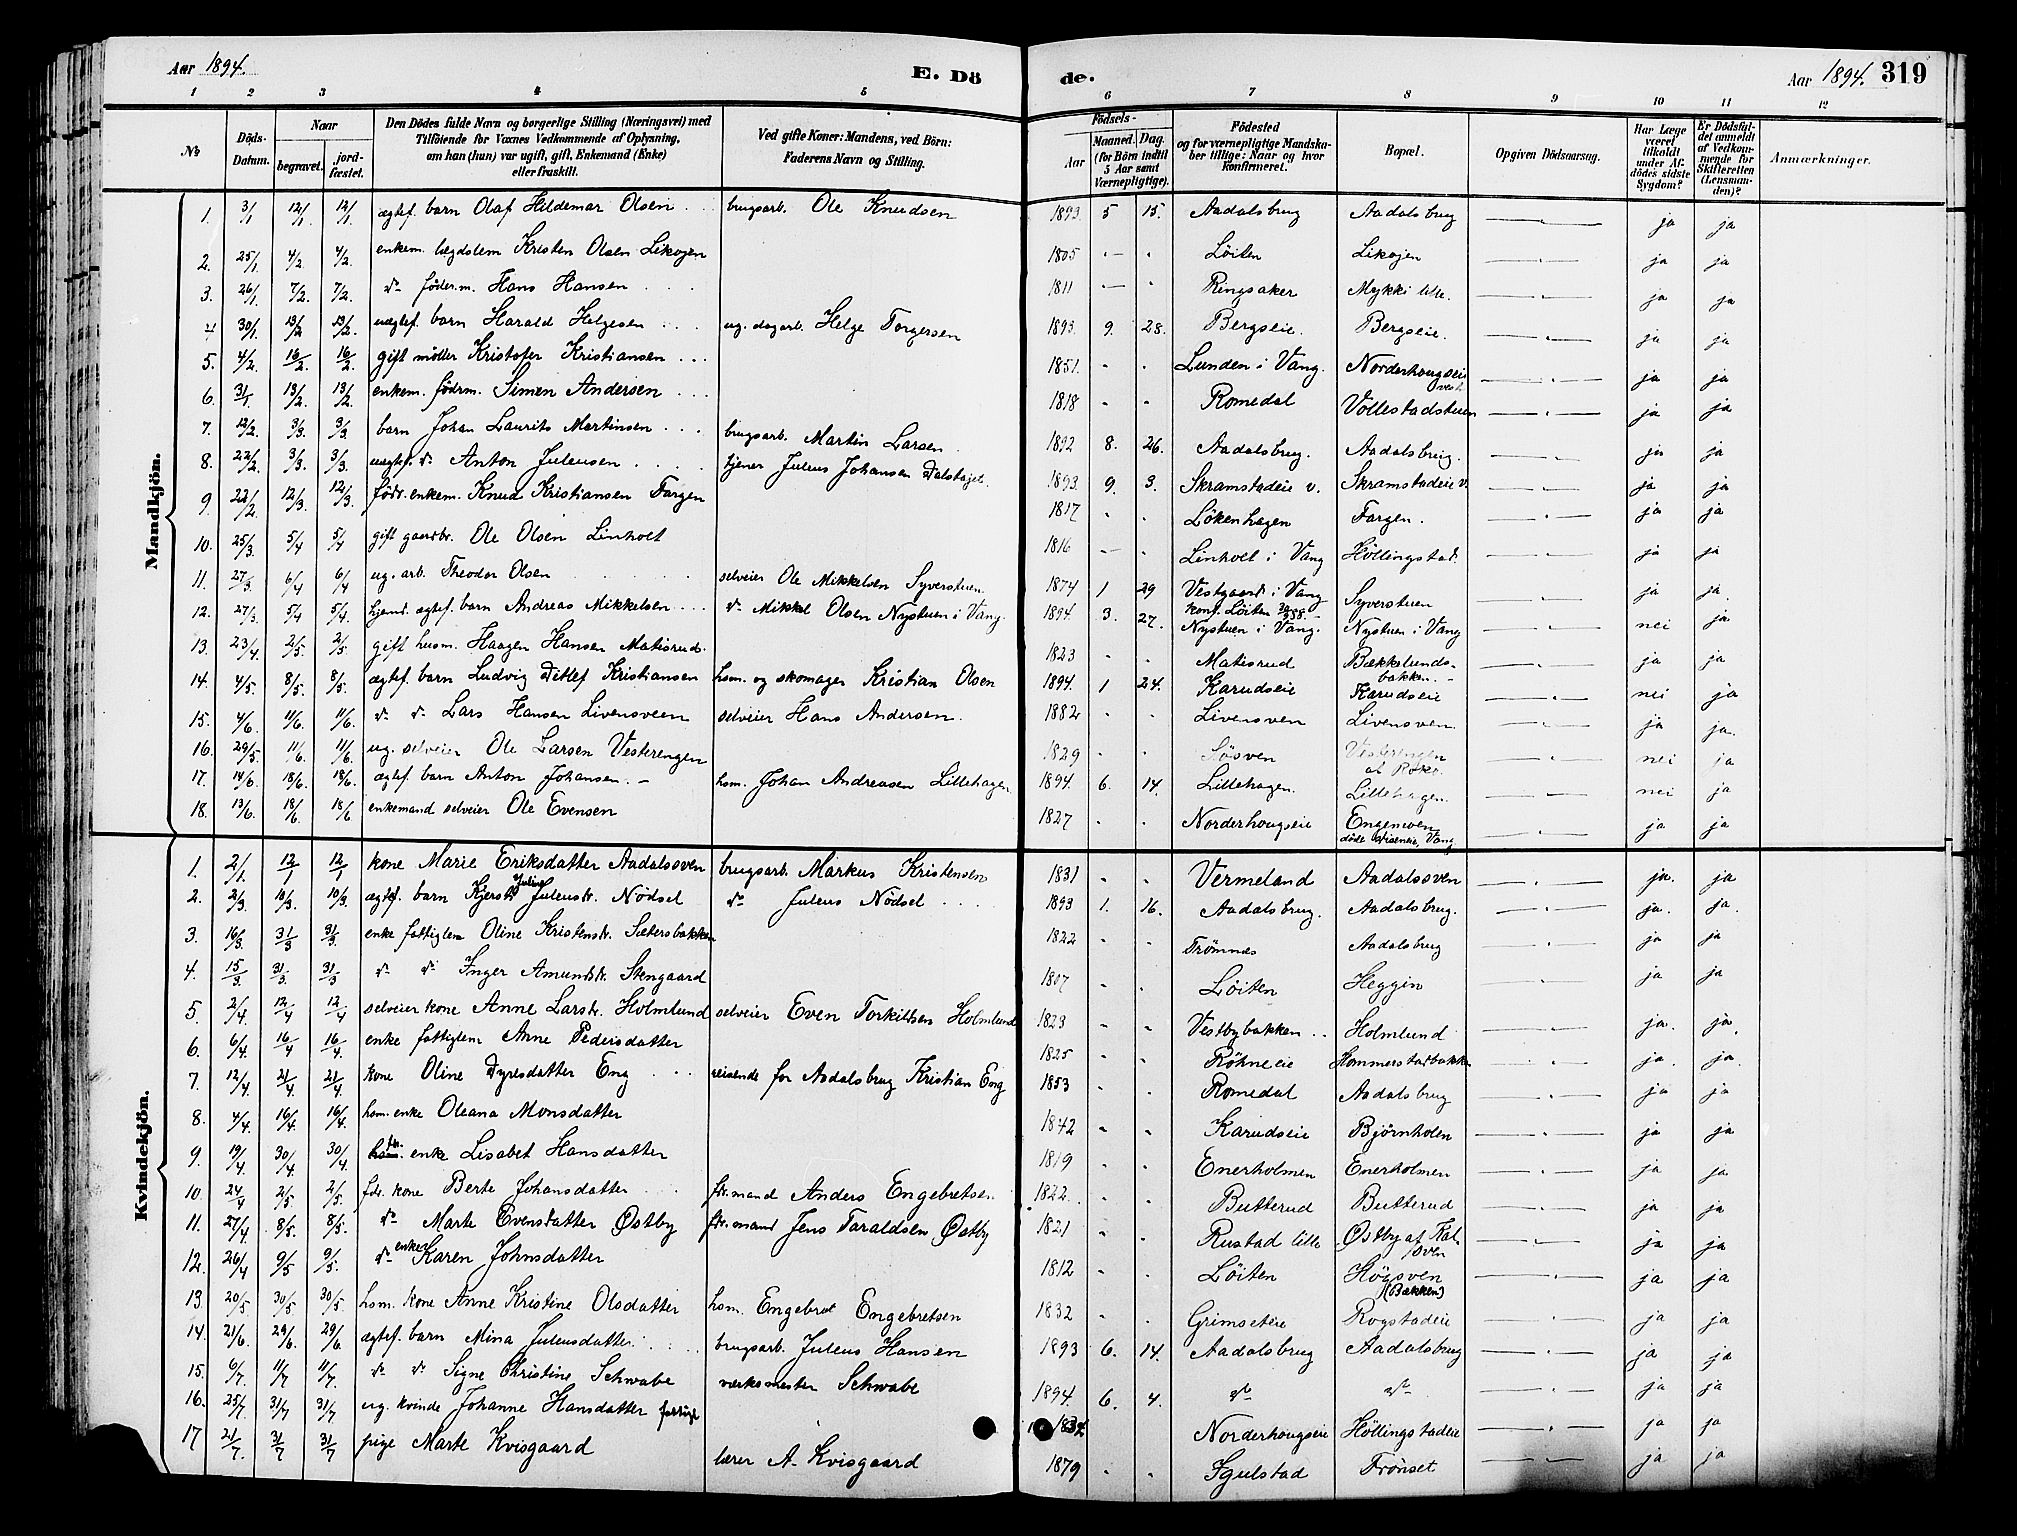 Aar 1894. E. Dö de. Aar 1894. 319
1 2 3 4 5 6 7 8 9 10 11 12
No Döds-Datum. Naar begravet. jord-fæstet. Den Dödes fulde Navn og borgerlige Stilling (Næringsvei) med Tilföiende for Voxnes Vedkommende af Oplysning, om han (hun) var ugift, gift, Enkemand (Enke) eller fraskilt. Ved gifte Koner: Mandens, ved Börn: Faderens Navn og Stilling. Födsels- Aar Maaned. Dag. (for Börn indtil 5 Aar samt Værnepligtige). Födested og for værnepligtige Mandskaber tillige: Naar og hvor konfirmeret. Bopæl. Opgiven Dödsaarsag. Har Læge været tilkaldt under Afdödes sidste Sygdom? Er Dödsfaldet anmeldt af Vedkommende for Skifteretten (Lensmanden)? Anmærkninger.
Mandkjön.
1. 3/1 12/1 12/1. ægtef. barn Olaf Hildemar Olsen brugsarb. Ole Knudsen 1893. 5 15. Aadalsbrug Aadalsbrug ja ja
2. 25/1. 4/2 4/2. enkem. lægdslem Kristen Olsen Likojen 1805 Löiten Likojen ja ja
3. 26/1. 7/2. 7/2. do föder.m. Hans Hansen 1811 Ringsaker Mykki lille. ja ja
4 30/1. 13/2 13/2. uægtef. barn Harald Helgesen ug. dagarb. Helge Torgersen 1893. 9. 28. Bergseie. Bergseie. ja ja
5. 4/2. 16/2 16/2. gift möller Kristofer Kristiansen 1851. Lunden i Vang. Norderhougseie vest. ja ja
6. 31/1. 13/2. 13/2. enkem. födrm. Simen Andersen 1818 Romedal Vollestadstuen ja ja
7. 12/2. 3/3. 3/3. barn Johan Laurits Martinsen brugsarb. Martin Larsen 1892 8. 26. Aadalsbrug. Aadalsbrug. ja ja
8. 22/2 3/3. 3/3. uægtef. do Anton Juleusen tjener Juleus Johansen Dalstøjet. 1893. 9. 3. Skramstadeie v. Skramstadeie v. ja ja
9 22/2 12/3. 12/3. födr. enkem. Knud Kristiansen Fargen 1817 Lökenhagen Fargen. ja ja
10. 25/3. 5/4 5/4 gift gaardbr. Ole Olsen Linholt 1816 Linholt i Vang Höllingstad. ja ja
11. 27/3 6/4 6/4 ug. arb. Theodor Olsen selveier Ole Mikkelsen Syverstuen. 1874 1 29 Vestgaard i Vang konf. Löiten Syverstuen ja ja.
12. 27/3. 5/4 5/4. hjemd. ægtef. barn Andreas Mikkelsen do Mikkel Olsen Nystuen i Vang. 1894. 3. 27. Nystuen i Vang. Nystuen i Vang nei ja
13. 23/4 2/5. 2/5. gift husm. Haagen Hansen Matisrud. 1823 Matisrud Bækkelundsbakken. ja ja
14. 4/5. 8/5. 8/5. ægtef. barn Ludvig Ditlef Kristiansen hsm. og skomager Kristian Olsen 1894. 1 24. Karudseie Karudseie nei ja
15. 4/6. 11/6. 11/6. do do Lars Hansen Livensveen selveier Hans Andersen. 1882 Livensven Livensven. ja ja.
16. 29/5. 11/6. 11/6. ug. selveier Ole Larsen Vesterengen 1829 Vesterengen nei ja
17. 14/6. 18/6. 18/6. ægtef. barn Anton Johansen. hsm. Johan Andreasen Lillehagen. 1894. 6. 14. Lillehagen. Lillehagen. nei ja
18. 13/6. 18/6 18/6 enkemand selveier Ole Evensen 1827 Norderhougseie Engenoven ja ja
Kvindekjön.
1. 2/1. 12/1 12/1 kone Marie Eriksdatter Aadalsoven brugsarb. Markus Kristensen 1831 Vermeland Aadalsoven ja. ja
2. 2/3. 10/3. 10/3. ægtef. barn Kjersti Julie Juleusdr. Nödsel do Juleus Nödsel 1893 1. 16. Aadalsbrug. Aadalsbrug. ja. ja.
3. 16/3. 31/3 31/3. enke fattiglem Oline Kristensdr. Sætersbakken 1822 Trömnes Aadalsbrug ja ja
4. 15/3. 31/3. 31/3 do do Inger Amundsdr. Stengaard 1807 Löiten Heggin ja ja
5. 2/4. 12/4 12/4 selveier kone Anne Larsdr. Holmlund selveier Even Torkildsen Holmlund 1823 Vestbybakken Holmlund ja. ja.
6. 6/4. 16/4 16/4. enke fattiglem Anne Pedersdatter 1825 Röhneeie Hommerstadbakken ja. ja.
7. 12/4. 21/4. 21/4. kone Oline Dyresdatter Eng reisende for Aadalsbrug Kristian Eng 1853 Romedal Aadalsbrug ja ja
8. 4/4. 16/4. 16/4. hsm. enke Oleana Monsdatter 1842 Karudseie Björnholen ja ja
9. 19/4 30/4. 30/4. fdr. enke Lisabet Hansdatter 1819 Enerholmen Enerholmen ja ja
10. 24/4 2/5. 2/5. fdr. kone Berte Johansdatter fdr. mand Anders Engebretsen 1822. Butterud Butterud ja ja
11. 27/4. 8/5. 8/5. do Marte Evensdatter Østby fdr. mand Jens Taraldsen Østby 1821 Rustad lille Østby af Kaloven ja ja
12. 26/4 9/5 9/5. do enke Karen Johnsdatter 1812 Löiten Högsven (Bakken) ja ja
13. 20/5. 30/5 30/5. hsm. kone Anne Kristine Olsdatter hsm. Engebret Engebretsen 1832 Grimseteie Rogstadeie ja ja
14. 21/6 29/6. 29/6 ægtef. barn Mina Juleusdatter brugsarb. Juleus Hansen 1893 6. 14. Aadalsbrug Aadalsbrug ja ja
15. 6/7. 11/7 11/7. do do Signe Christine Schwabe værksmester Schwabe 1894. 6. 4. do do ja ja
16. 25/7. 31/7 31/7. ug. kvinde Johanne Hansdatter fattigl 1834 Norderhougseie Höllingstadeie ja ja
17 21/7. 31/7 31/7 pige Marte Kvisgaard lærer A. Kvisgaard 1879 Sgulstad Frönset ja ja